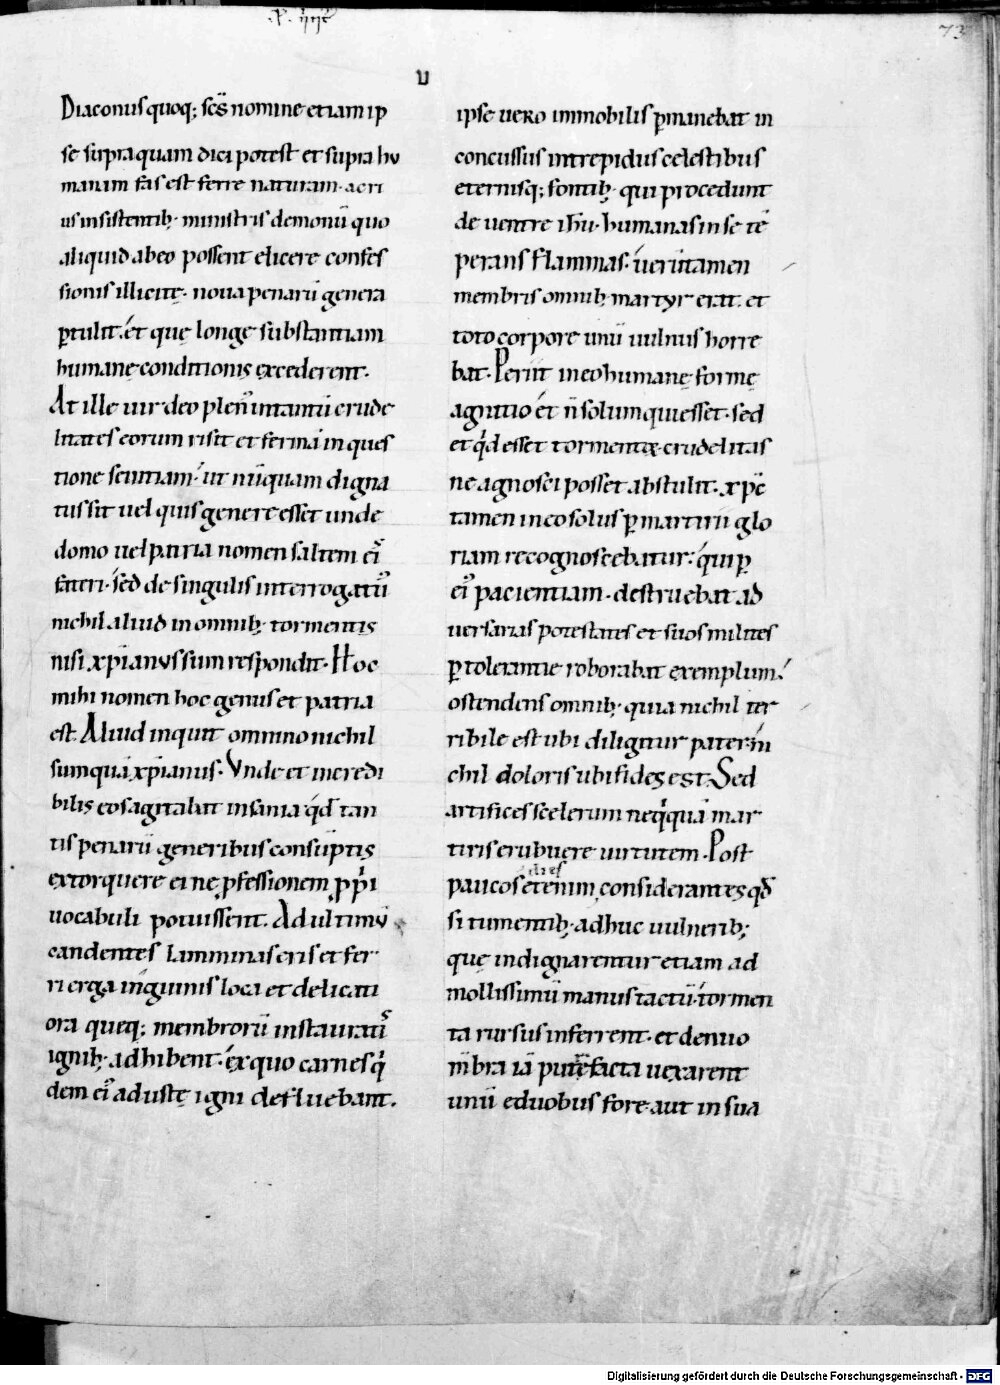 73
U
Diaconus quoq; scs̄ nomine etiam ip
se supra quam dici potest et supra hu
manam fas est ferre naturam. acri
us insistentib; ministris demonū quo
aliquid ab eo possent elicere confes
sionis illicitę. noua penarū genera
ptulit. et quę longe substantiam
humanę conditionis excederent.
At ille uir deo plen intantū crude
litates eorum risit et fermā in ques
tione seuitiam. ut nūquam digna
tus sit uel quis genere esset unde
domo uel patria nomen saltem ei
fateri. sed de singulis interrogatū
nichil aliud in omnib; tormentis
nisi xp̄ianus sum respondit. Hoc
mihi nomen hoc genus et patria
est. Aliud inquit omnino nichil
sum quā xp̄ianus. Unde et incredi
bilis eos agitabat insania qd tan
tis penarū generibus consūptis
extorquere ei ne pfessionem pprii
uocabuli potuissent. Ad ultimū
candentes lamminas eris et fer
ri erga inguinis loca et delicati
ora queq; membrorū instaurati
ignib; adhibent. ex quo carnes q
dem ei adustę igni defluebant.
ipse uero immobilis pmanebat in
concussus intrepidus celestibus
eternisq; fontib; qui procedunt
de uentre ihu. humanas in se tē
perans flammas. ueruntamen
membris omnib; martyr erat. et
toto corpore unū uulnus horre
bat. Periit in eo humanę formę
agnitio et n̄ solum qui esset. sed
et qd esset tormentor crudelitas
ne agnosci posset abstulit. xpc̄
tamen in eo solus p martirii glo
riam recognoscebatur. qui p
ei pacientiam. destruebat ad
uersarias potestates et suos milites
p tolerantię roborabat exemplum.
ostendens omnib; quia nichil ter
ribile est ubi diligitur pater. ni
chil doloris ubi fides est. Sed
artifices scelerum neq̄quā mar
tiris erubuere uirtutem. Post
paucos etenim dies considerantes qd
si tumentib; adhuc uulnerib;
quę indignarentur etiam ad
mollissimū manus tactū. tormen
ta rursus inferrent. et denuo
m̄bra iā putefacta uexarent
unū e duobus fore. aut in sua
Digitalisierung gefördert durch die Deutsche Forschungsgemeinschaft - DFG